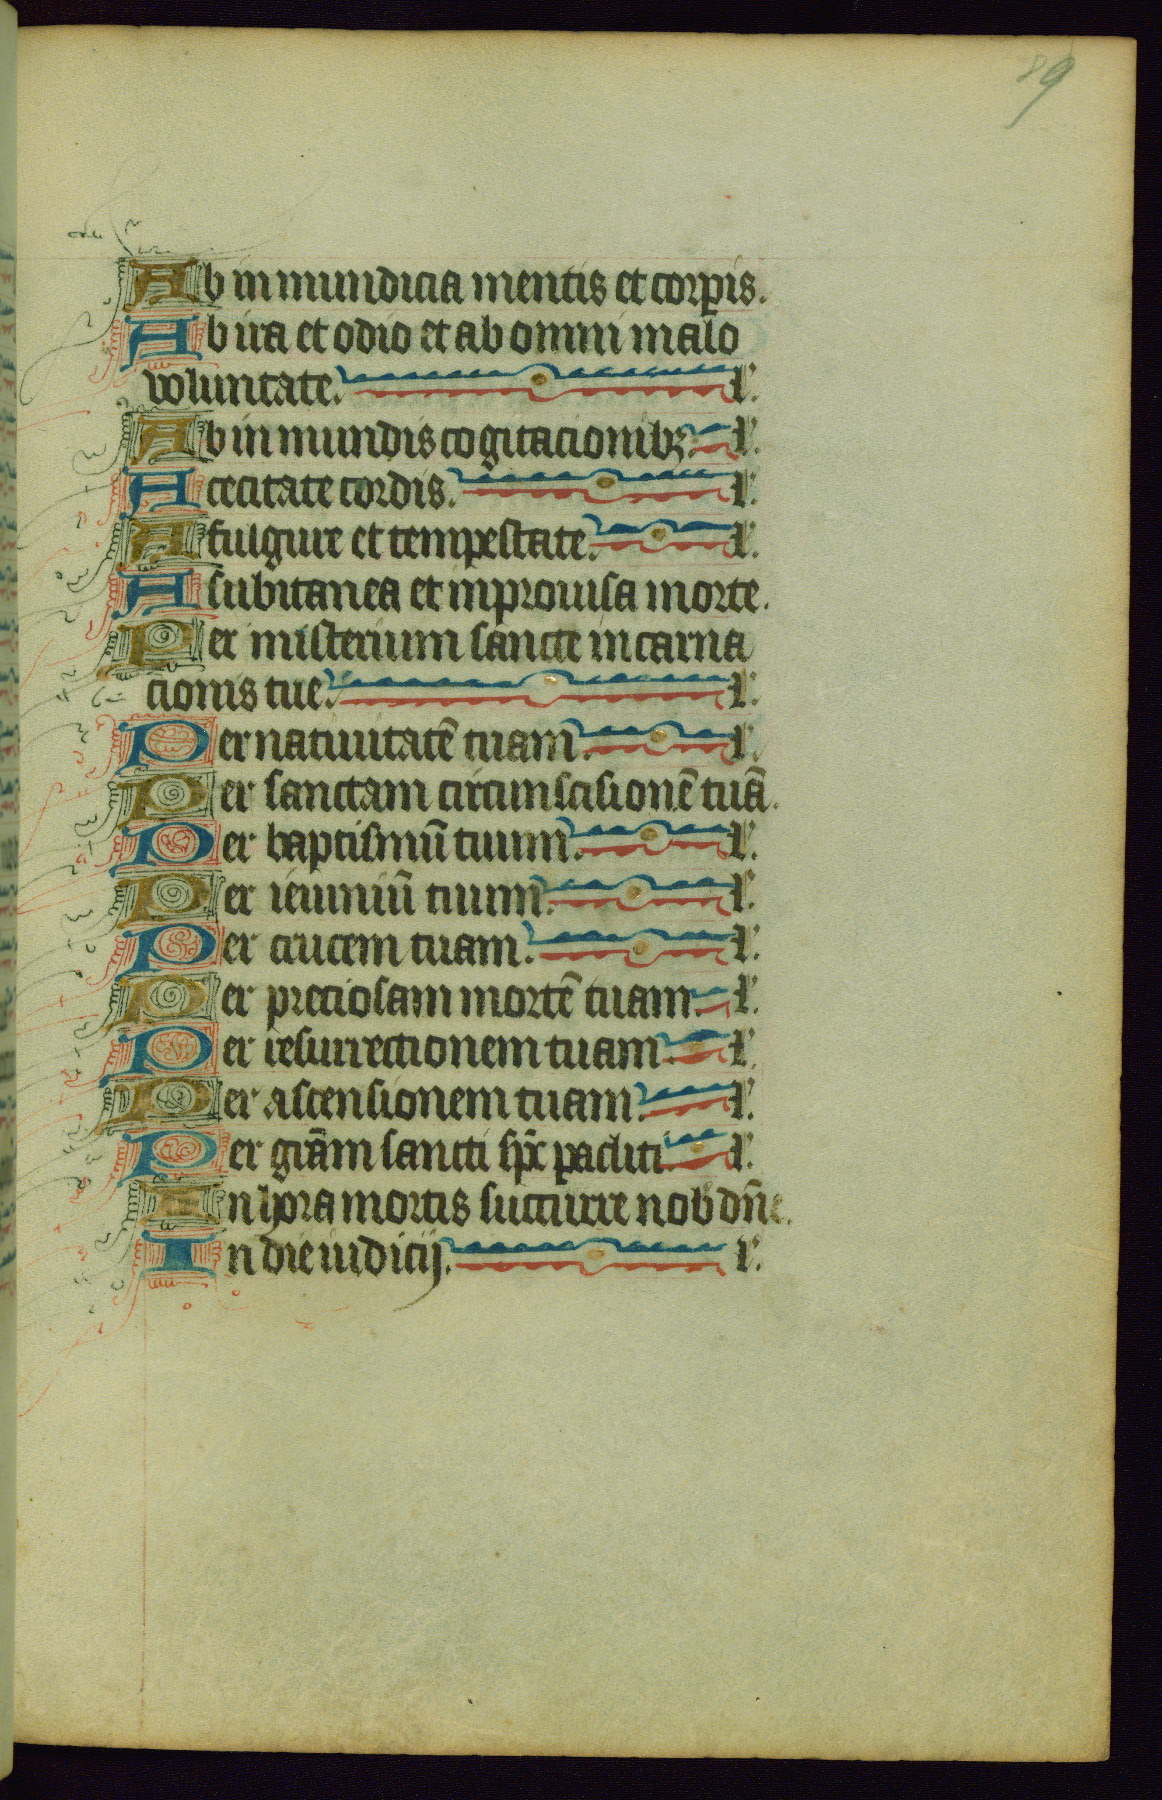 89
Ab in mundicia mentis et corpis.
Ab ira et odio et ab omni malo
voluntate. l'.
Ab in mundis cogitacionibꝫ l'.
A cecitate cordis. l'.
A fulgure et tempestate. l'.
A subitanea et inprouisa morte.
Per misterium sancte in carna
cionis tue. l'.
Per natiuitatē tuam. l'.
Per sanctam circumscisionē tuā.
Per baptismū tuum. l'.
Per ieiuniū tuum. l'.
Per crucem tuam. l'.
Per preciosam mortē tuam. l'.
Per resurrectionem tuam l'.
Per ascensionem tuam. l'.
Per grām sancti spc̄ pacliti. l'.
In hora mortis succurre nob dn̄e.
In die iudicij. l'.